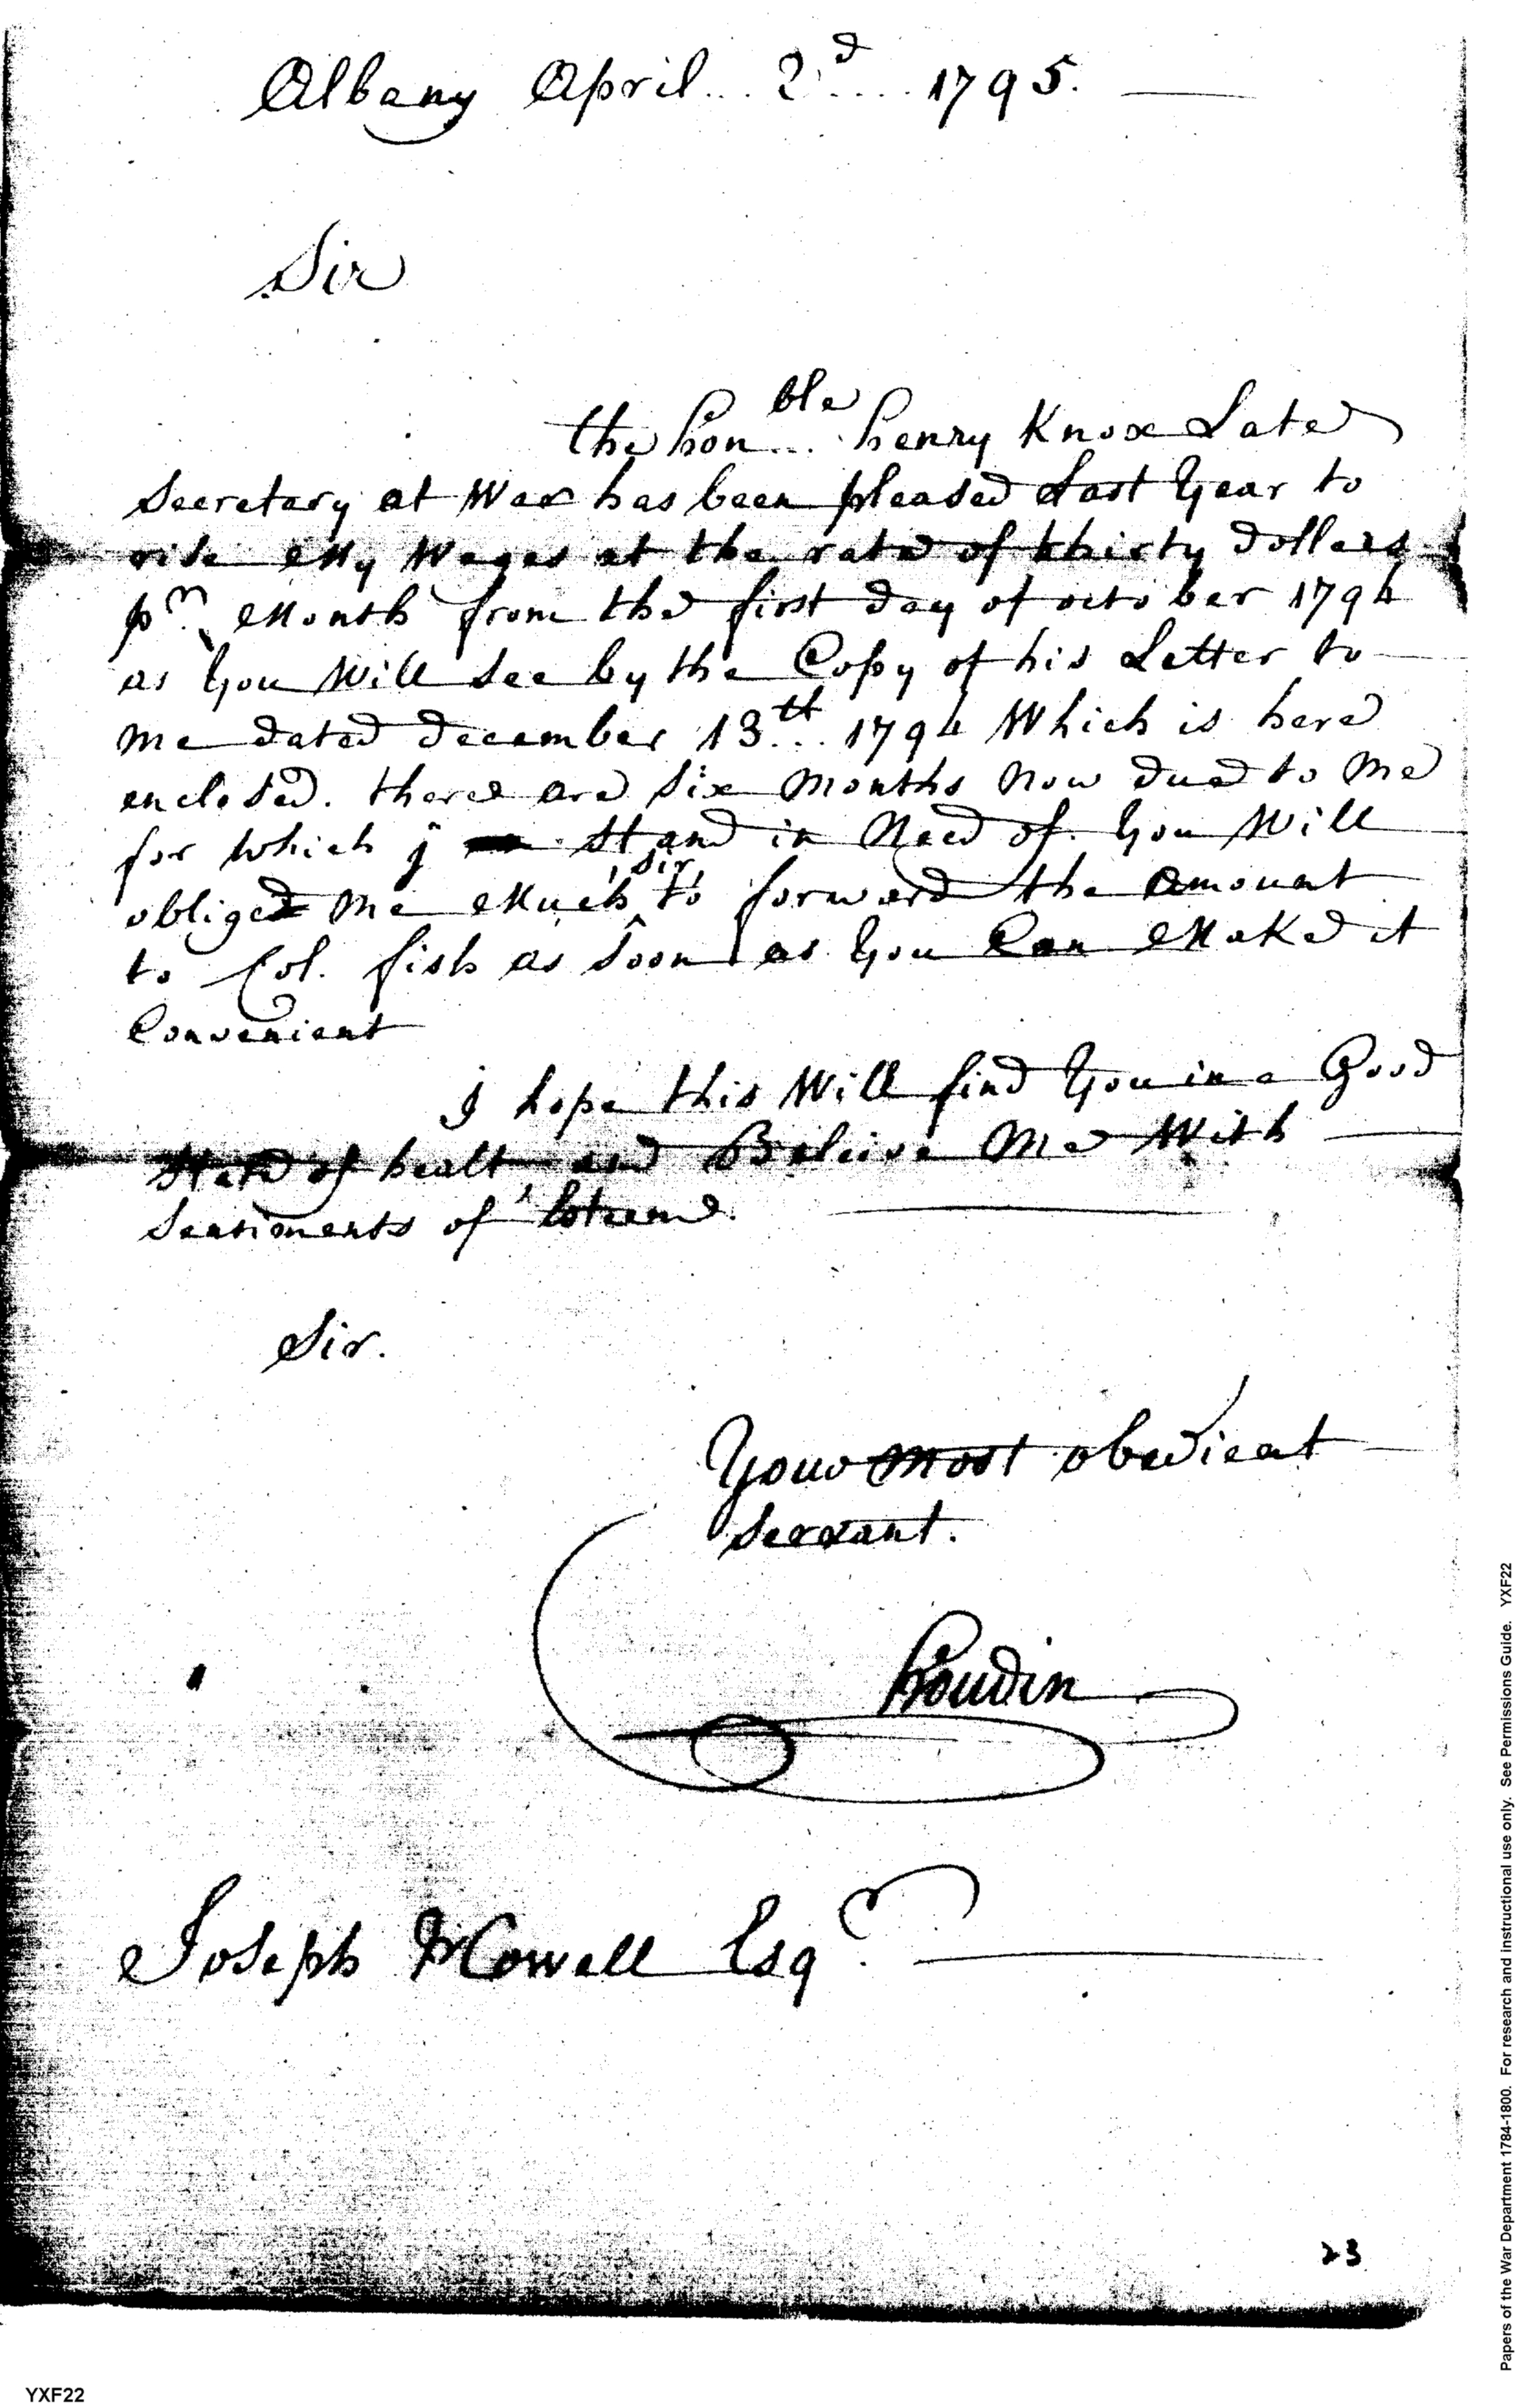 Albany April... 2d.... 1795.
Sir
the hon...ble henry Knox Late
Secretary at War has been pleased Last Year to
rise My Wages at the rate of thirty dollers
pr. Month from the first day of october 1794
as You Will See by the Copy of his Letter to
me dated december 13th... 1794 Which is here
enclosed. there are Six Months Now due to Me
for which j Stand in Need of. You Will
oblige Me Much, Sir, to forward the Amount
to Col. fish as Soon as You Can Make it
Convenient
I hope this Will find You in a Good
State of healt and Beleive Me With
Sentiments of Esteeme.
Sir.
Your most obedient
Servant.
houdin
Joseph Howell Esqr.
23
Papers of the War Department 1784-1800. For research and instructional use only. See Permissions Guide. YXF22
YXF22